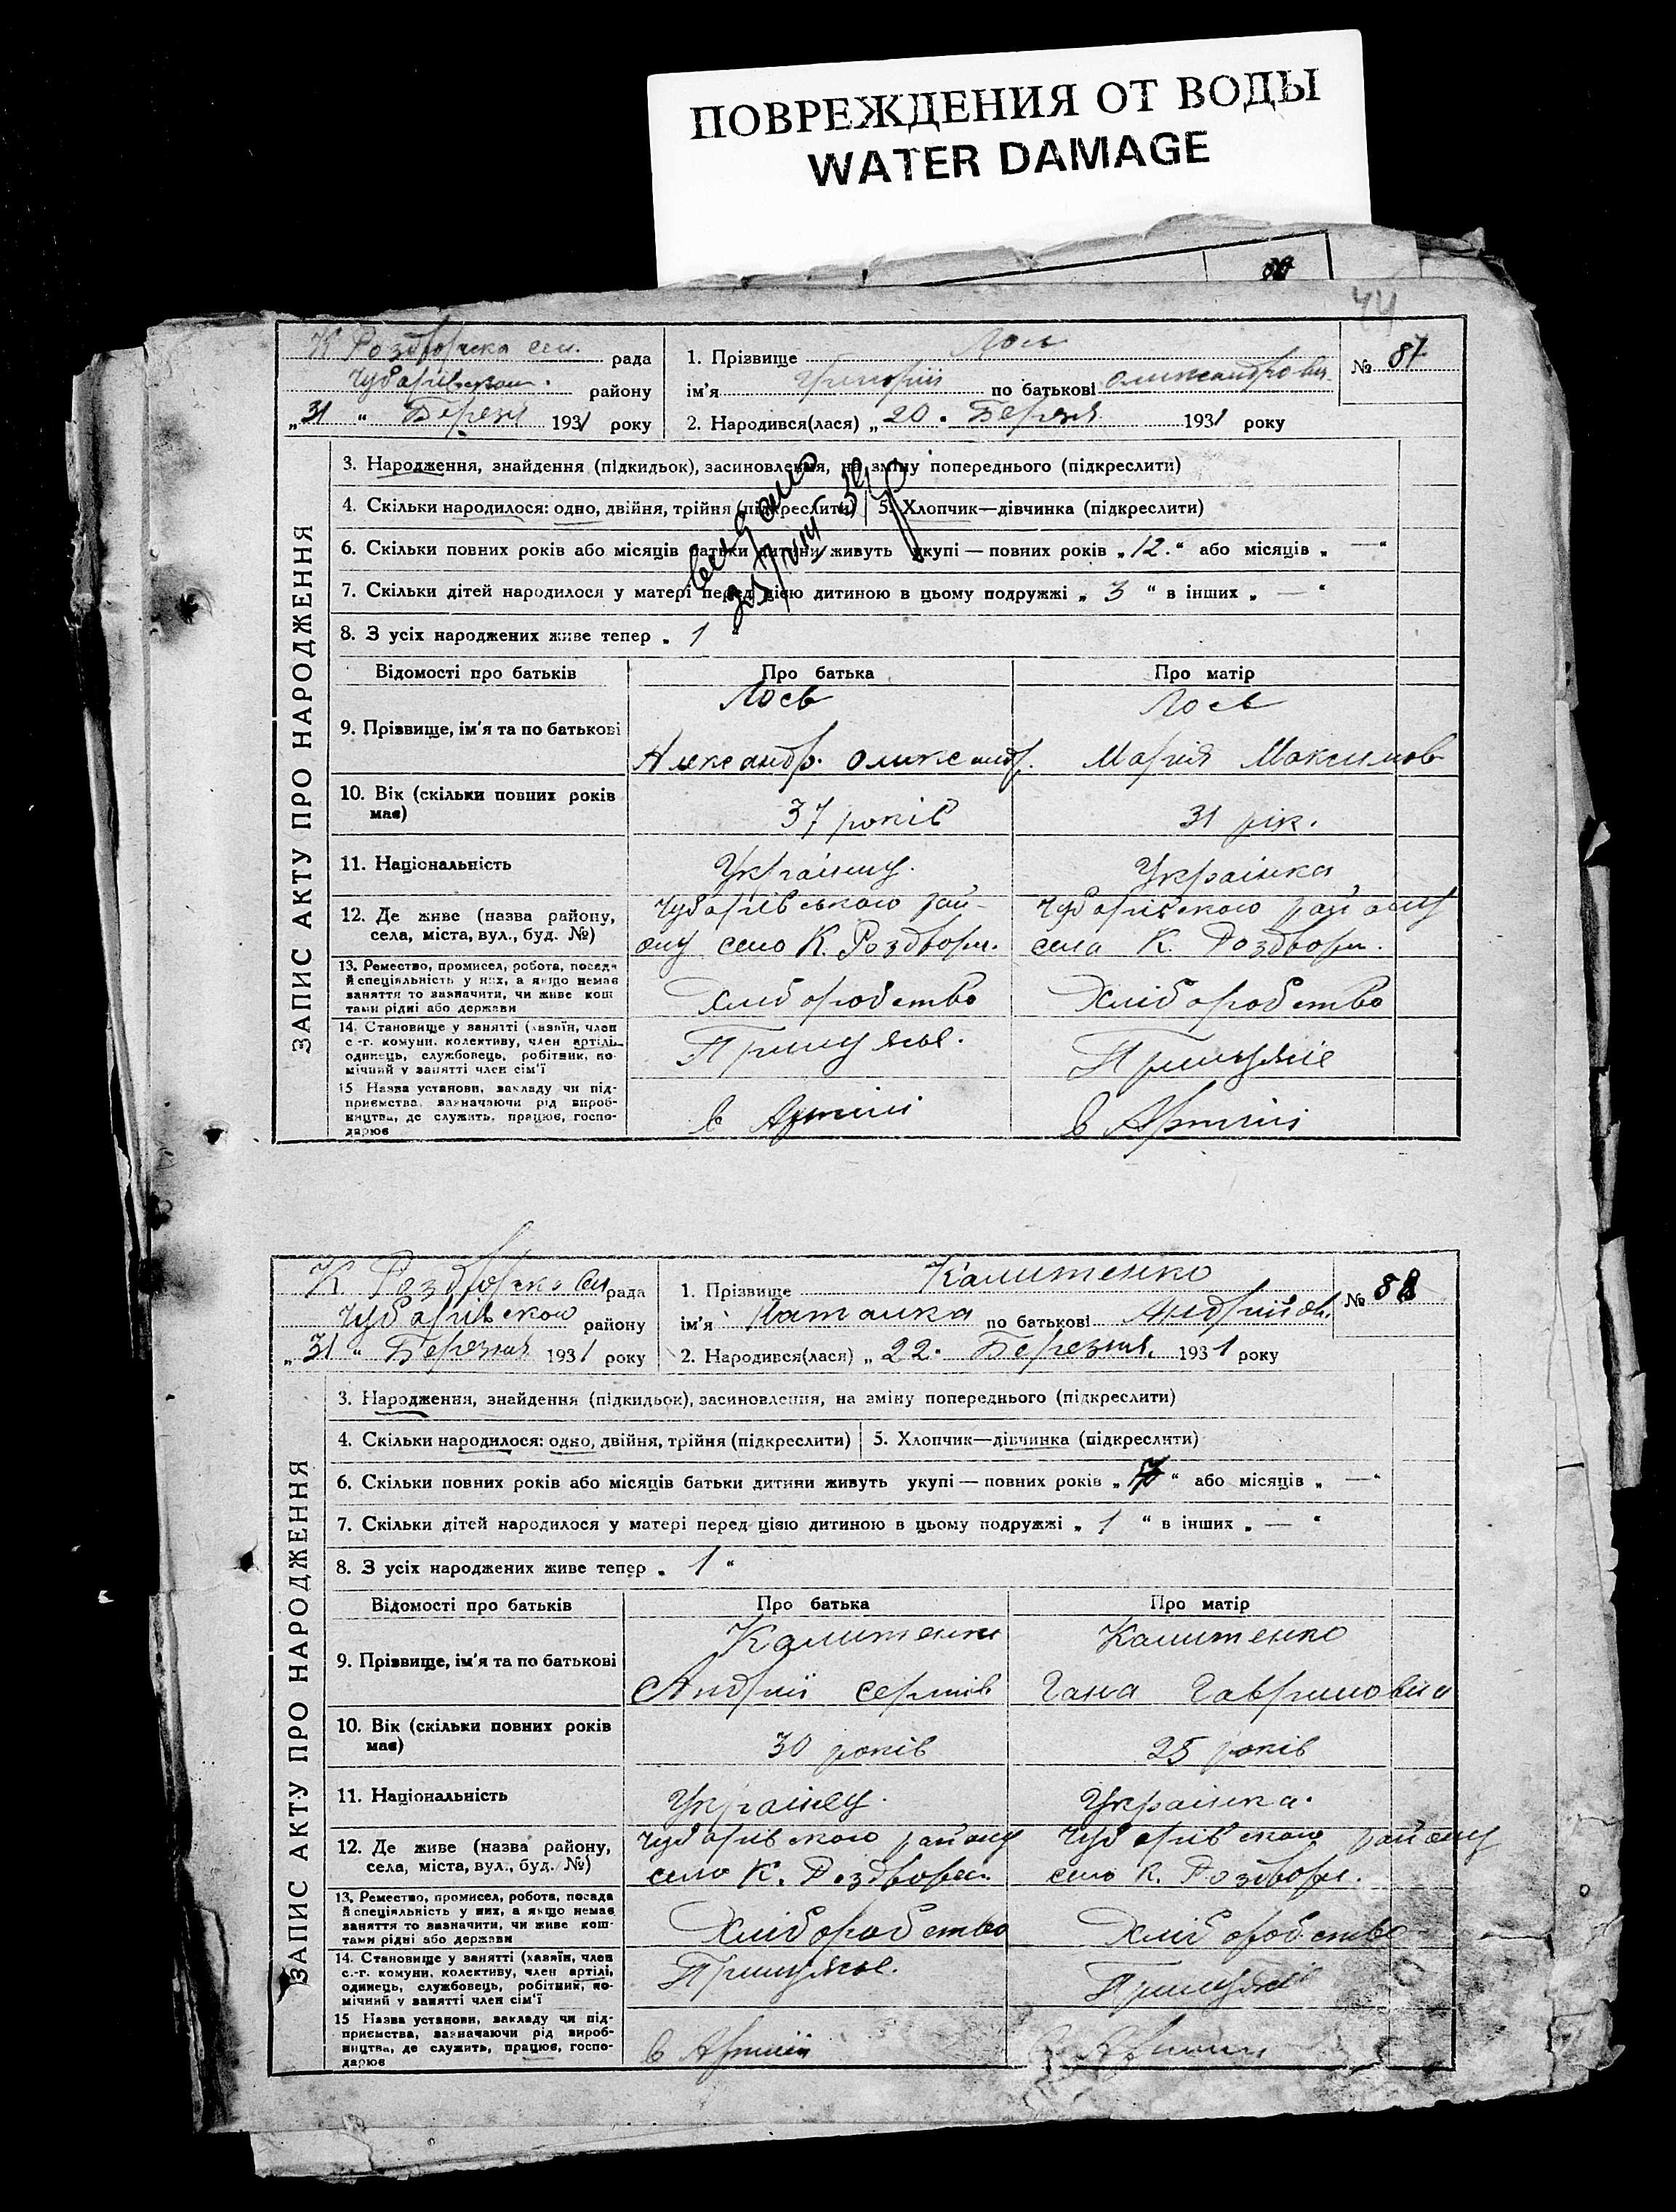 ПОВРЕЖДЕНИЯ ОТ ВОДЫ
WATER DAMAGE
44
К Роздорска сел. рада
Чубарівського району
„31“ Березня 1931 року
1. Прізвище Лось
ім'я Григорій по батькові Олександрович
№ 87
2. Народився(лася) „20. Березня 1931 року
ЗАПИС АКТУ ПРО НАРОДЖЕННЯ
3. Народження, знайдення (підкидьок), засиновлення, на зміну попереднього (підкреслити)
4. Скільки народилося: одно, двійня, трійня (підкреслити) 5. Хлопчик—дівчинка (підкреслити)
6. Скільки повних років або місяців батьки дитини живуть укупі — повних років „12.“ або місяців „—“
7. Скільки дітей народилося у матері перед цією дитиною в цьому подружжі „3“ в інших „—“
8. З усіх народжених живе тепер „1“
видано
25/VIII 39 р
Відомості про батьків Про батька Про матір
9. Прізвище, ім'я та по батькові
Лось Лось
Александр. Олександр. Марія Максимов
10. Вік (скільки повних років має) 37 років 31 рік.
11. Національність Українец. Українка
12. Де живе (назва району, села, міста, вул., буд. №)
Чубарівського рай- Чубарівського району
ону село К. Роздори. села К. Роздори.
13. Ремество, промисел, робота, посада й спеціяльність у них, а якщо немає заняття то зазначити, чи живе коштами рідні або держави
Хліборобство Хліборобство
14. Становище у занятті (хазяїн, член с.-г. комуни, колективу, член артілі, одинець, службовець, робітник, помічний у занятті член сім'ї
15 Назва установи, закладу чи підприємства, зазначаючи рід виробництва, де служить, працює, господарює
в Артілі в Артілі
К. Роздорска сел рада
Чубарівского району
„31“ Березня 1931 року
1. Прізвище Калитенко
ім'я Наталка по батькові Андрійов.
№ 88
2. Народився(лася) „22. Березня. 1931 року
ЗАПИС АКТУ ПРО НАРОДЖЕННЯ
3. Народження, знайдення (підкидьок), засиновлення, на зміну попереднього (підкреслити)
4. Скільки народилося: одно, двійня, трійня (підкреслити) 5. Хлопчик—дівчинка (підкреслити)
6. Скільки повних років або місяців батьки дитини живуть укупі — повних років „ “ або місяців „—“
7. Скільки дітей народилося у матері перед цією дитиною в цьому подружжі „1“ в інших „—“
8. З усіх народжених живе тепер „1“
Відомості про батьків Про батька Про матір
9. Прізвище, ім'я та по батькові
Калитенко Калитенко
Андрій Гана Гавриловна
10. Вік (скільки повних років має) 30 років 25 років
11. Національність Українец. Українка.
12. Де живе (назва району, села, міста, вул., буд. №)
Чубарівского району Чубарівского району
село К. Роздори. село К. Роздори.
13. Ремество, промисел, робота, посада й спеціяльність у них, а якщо немає заняття то зазначити, чи живе коштами рідні або держави
Хліборобство Хліборобство
14. Становище у занятті (хазяїн, член с.-г. комуни, колективу, член артілі, одинець, службовець, робітник, помічний у занятті член сім'ї
15 Назва установи, закладу чи підприємства, зазначаючи рід виробництва, де служить, працює, господарює
в Артілі в Артілі